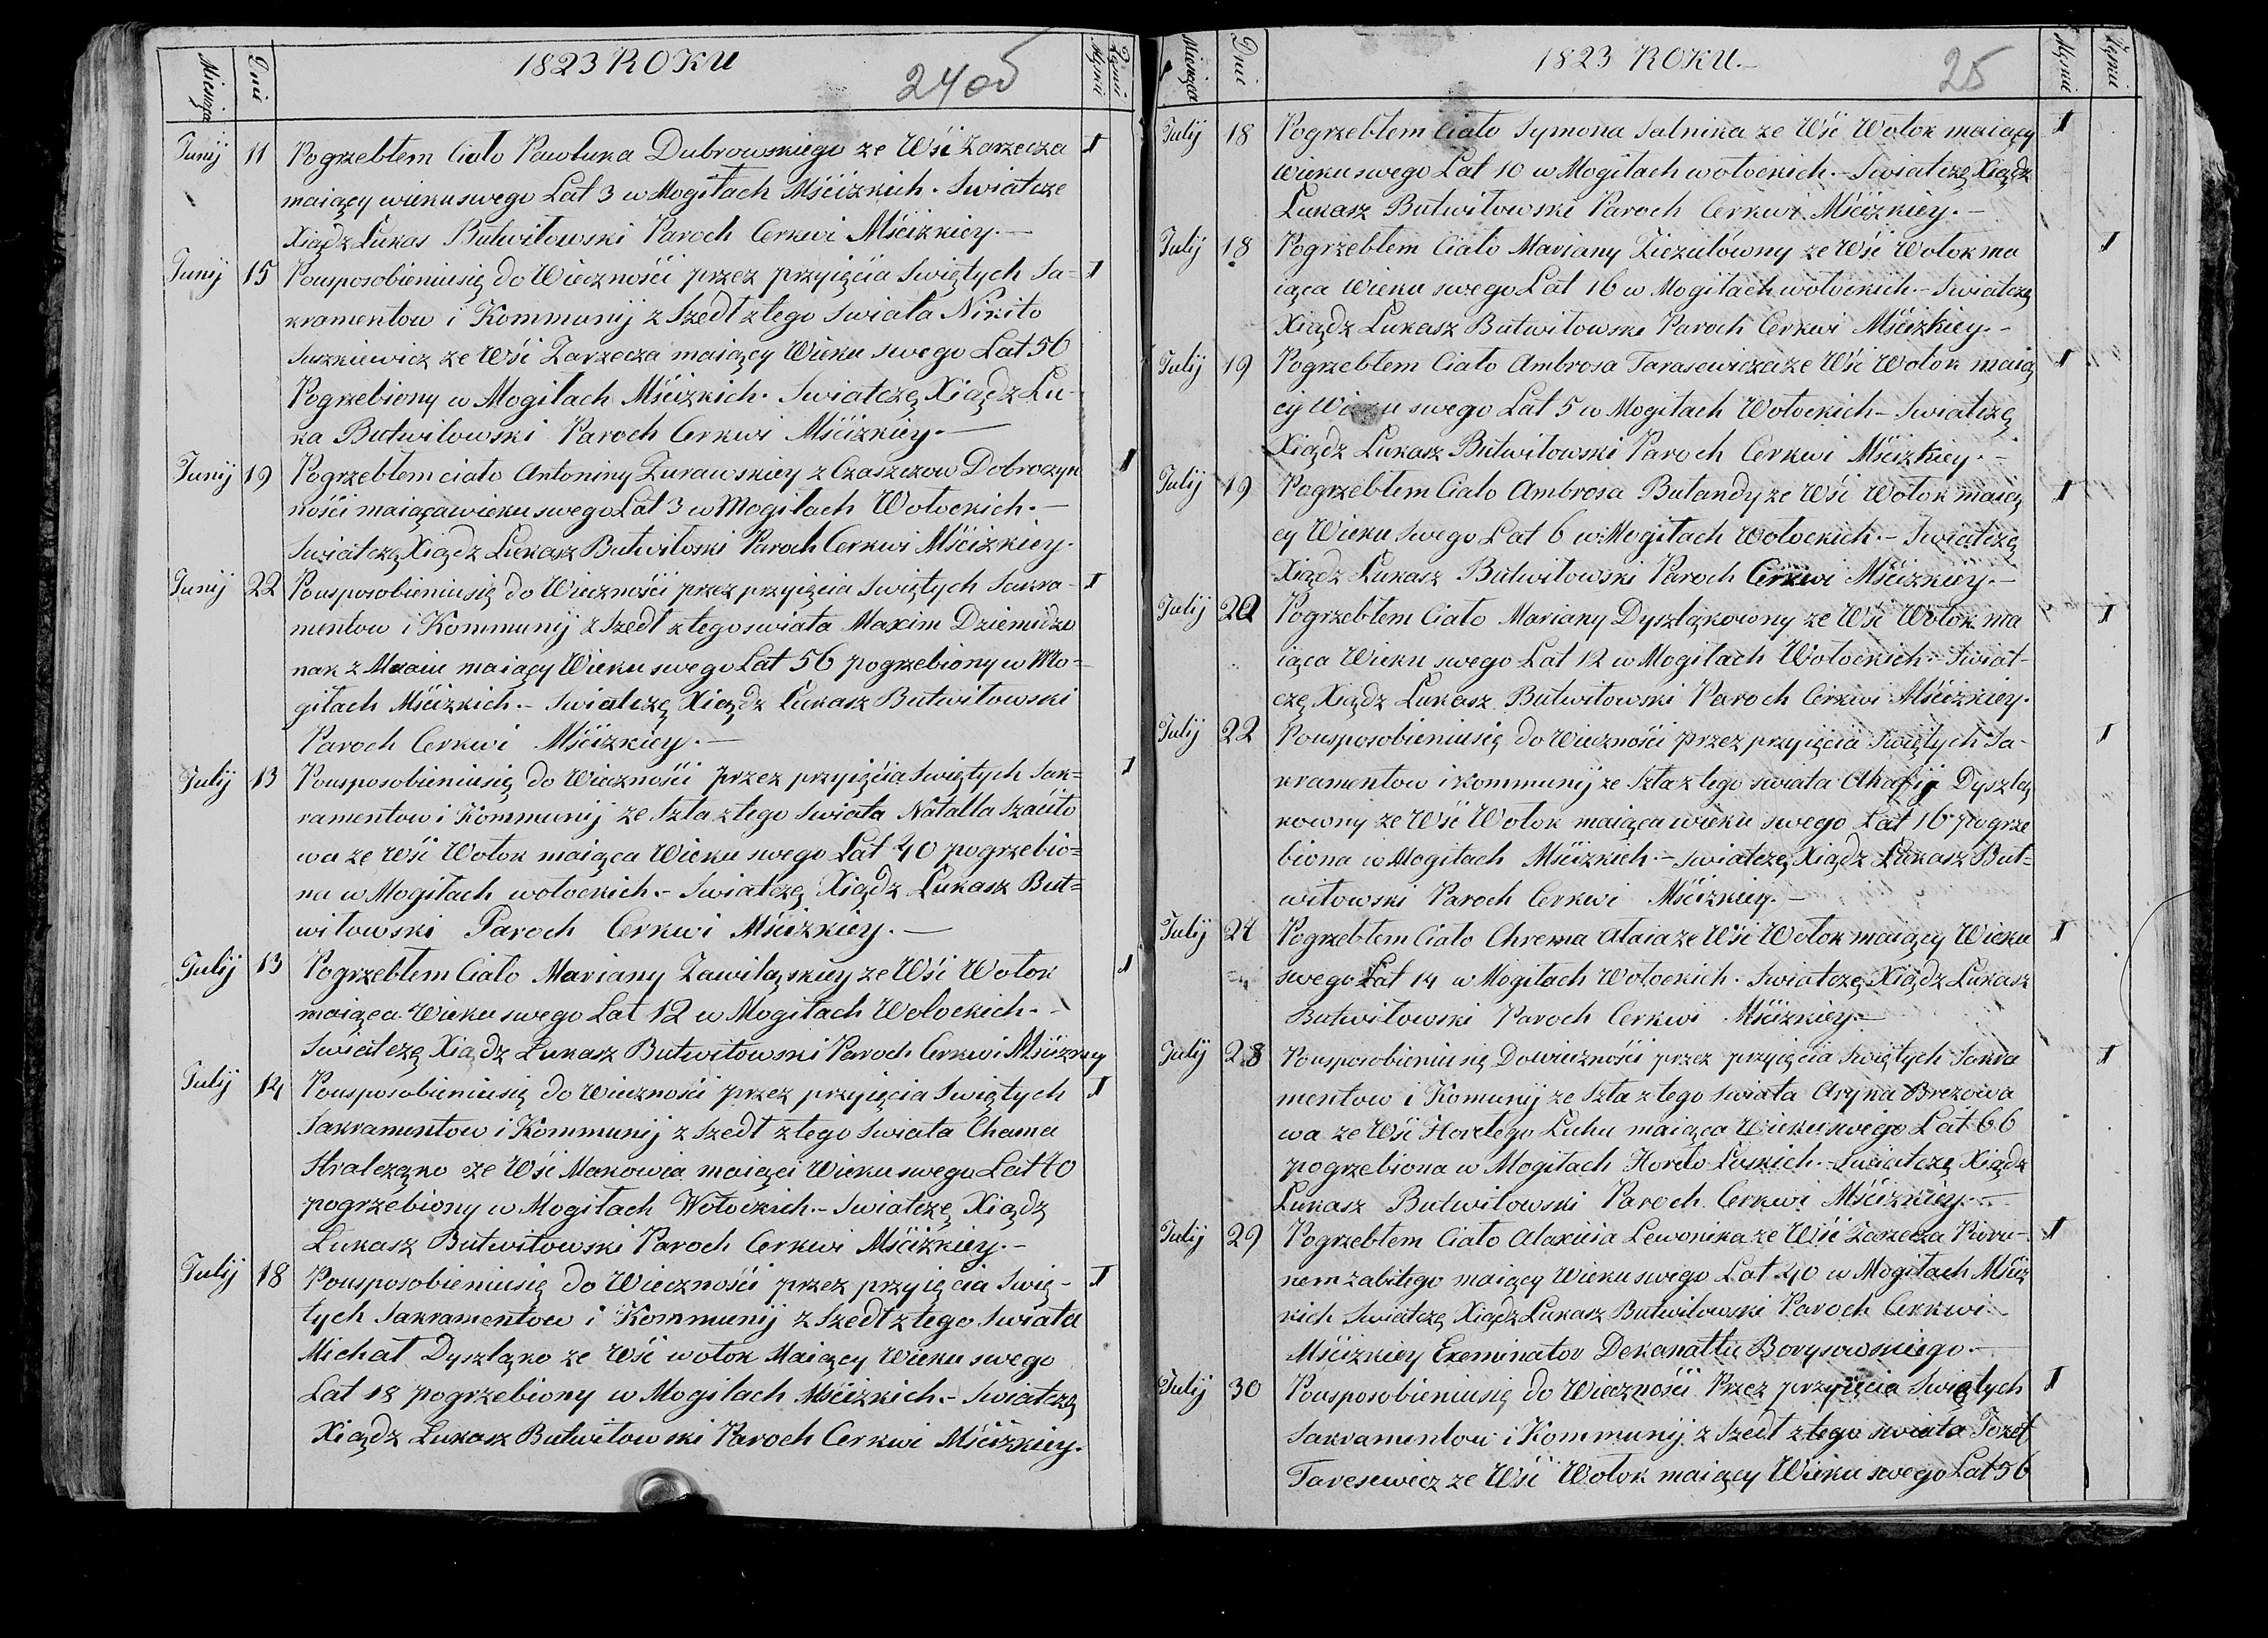 Miesiąca
Dni
1823 ROKU
24 об
Męzki
Żęnsi
Junij 11 Pogrzebłem Ciało Pawluka Dubrowskiego ze Wśi Zarzecza I
maiący wieku swego Lat 3 w Mogiłach Mścizkich. Swiatcze
Xiądz Lukas Butwiłowski Paroch Cerkwi Mścizkiey.—
Junij 15 Pousposobieniusię do Wiecznośći przez przyięcia Swiętych Sa= I
kramentow i Kommunij z Szedł z tego Swiata Nikito
Suszkiewicz ze Wśi Zarzecza maiący Wieku swego Lat 56
Pogrzebiony w Mogiłach Mścizkich. Swiatczę Xiądz Lu-
ka Butwiłowski Paroch Cerkwi Mścizkiey.—
Junij 19 Pogrzebłem ciało Antoniny Żurawskiey z Czaszczow Dobroczyn I
nośći maiąca wieku swego Lat 3 w Mogiłach Wołockich.—
Swiatczę Xiądz Lukasz Butwiłoski Paroch Cerkwi Mścizkiey.
Junij 22 Pousposobieniusię do Wiecznośći przez przyięcia Swiętych Sakra- I
mentow i Kommunij z Szedł z tego swiata Maxim Dziemidzo
nak z maiący Wieku swego Lat 56 pogrzebiony w Mo=
giłach Mścizkich.- Swiatczę Xiądz Lukasz Butwiłowski
Paroch Cerkwi Mścizkiey.—
Julij 13 Pousposobieniusię do Wiecznośći przez przyięćia Swiętych Sak= I
ramentow i Kommunij ze Szła z tego Swiata Natalla Szauto
wa ze Wśi Wołok maiąca Wieku swego Lat 40 pogrzebio=
na w Mogiłach wołockich.- Swiatczę Xiądz Lukasz But=
wiłowski Paroch Cerkwi Mścizkiey.—
Julij 13 Pogrzebłem Ciało Mariany Zawiląskiey ze Wśi Wołok I
maiąca Wieku swego Lat 12 w Mogiłach Wołockich.-
Swiatczę Xiądz Lukasz Butwiłowski Paroch Cerkwi Mścizkiey
Julij 14 Pousposobieniusię do Wiecznośći przez przyięcia Swiętych I
Sakramentow i Kommunij z Szedł z tego Swiata Chama
Stralcząko ze Wśi Makowia maiąci Wieku swego Lat 40
pogrzebiony w Mogiłach Wołoczkich.- Swiatczę Xiądz
Lukasz Butwiłowski Paroch Cerkwi Mścizkiey.-
Julij 18 Pousposobieniusię do Wiecznośći przez przyięcia Swię- I
tych Sakramentow i Kommunij z Szedł z tego Swiata
Michał Dyszląko ze Wśi wołok Maiący Wieku swego
Lat 18 pogrzebiony w Mogiłach Mścizkich.- Swiatczę
Xiądz Lukasz Butwiłowski Paroch Cerkwi Mścizkiey.
Miesiąca
Dni
1823 ROKU.-
25
Męzkie
Żęnsi
Julij 18 Pogrzebłem Ciało Symona Salnika ze Wśi Wołok maiący I
wieku swego Lat 10 w Mogiłach wołockich.- Swiatczę Xiądz
Lukasz Butwiłowski Paroch Cerkwi Mścizkiey.—
Julij 18 Pogrzebłem Ciało Mariany Ziezulówny ze Wśi Wołok ma I
iąca Wieku swego Lat 16 w Mogiłach wołockich.- Swiatczę
Xiądz Lukasz Butwiłowski Paroch Cerkwi Mścizkiey.-
Julij 19 Pogrzebłem Ciało Ambrosa Tarasewicza ze Wśi Wołok maią I
cy Wieku swego Lat 5 w Mogiłach Wołockich- Swiatczę
Xiądz Lukasz Butwiłowski Paroch Cerkwi Mścizkiey.-
Julij 19 Pogrzebłem Ciało Ambrosa Bułandy ze Wśi Wołok maią I
cy Wieku swego Lat 6 w Mogiłach Wołockich.- Swiatczę
Xiądz Lukasz Butwiłowski Paroch Cerkwi Mścizkiey.-
Julij 20 Pogrzebłem Ciało Mariany Dyszląkowny ze Wśi Wołok ma I
iąca Wieku swego Lat 12 w Mogiłach Wołockich- Swiat-
czę Xiądz Lukasz Butwiłowski Paroch Cerkwi Mścizkiey.
Julij 22 Pousposobieniusię do Wiecznośći przez przyięcia Swiętych Sa- I
kramentow i Kommunij ze Szła z tego swiata Ahafij Dyszlą
kowny ze Wśi Wołok maiąca wieku swego Lat 16 pogrze
biona w Mogiłach Mścizkich.- Swiatczę Xiądz Lukasz But=
wiłowski Paroch Cerkwi Mścizkiey.-
Julij 24 Pogrzebłem Ciało Chrema Ataia ze Wśi Wołok maiący Wieku I
swego Lat 14 w Mogiłach Wołockich. Swiatczę Xiądz Lukasz
Butwiłowski Paroch Cerkwi Mścizkiey.—
Julij 28 Pousposobieniu się Dowiecznośći przez przyięcia Swiętych Sakra I
mentow i Komunij ze Szła z tego swiata Aryna Brezowa
wa ze Wśi Horełego Luhu maiąca Wieku swego Lat 66
pogrzebiona w Mogiłach Horeło Luskich.- Swiatczę Xiądz
Lukasz Butwiłowski Paroch Cerkwi Mścizkiey.-
Julij 29 Pogrzebłem Ciało Alaxieia Lewonika ze Wśi Zarzecza Pioru- I
nem zabitego maiący Wieku swego Lat 40 w Mogiłach Mściz
kich Swiatczę Xiądz Lukasz Butwiłowski Paroch Cerkwi
Mścizkiey Exeminator Dekanattu Borysowskiego.—
Julij 30 Pousposobieniusię do Wiecznośći Przez przyięcia Swiętych I
Sakramentow i Kommunij z Szedł z tego swiata Jozef
Taresewicz ze Wśi Wołok maiący Wieku swego Lat 56